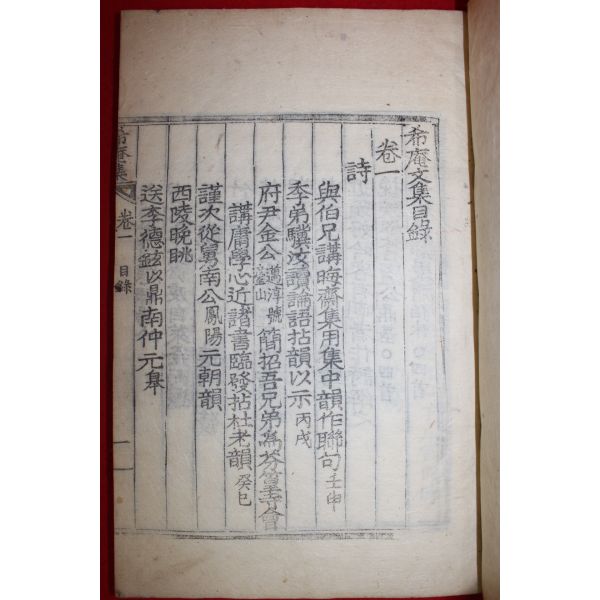 希庵文集目錄
卷一
詩
與伯兄講晦齋集用集中韻作聯句 壬申
季弟驥汝讀論語拈韻以示 丙戌
府尹金公 邁淳號臺山 簡招吾兄弟爲芬皇寺會
講庸學心近諸書臨發拈杜老韻 癸巳
謹次從舅南公 鳳陽 元朝韻
西陵晩眺
送李德鉉以鼎南仲元皋
希庵集 卷一 目錄 一